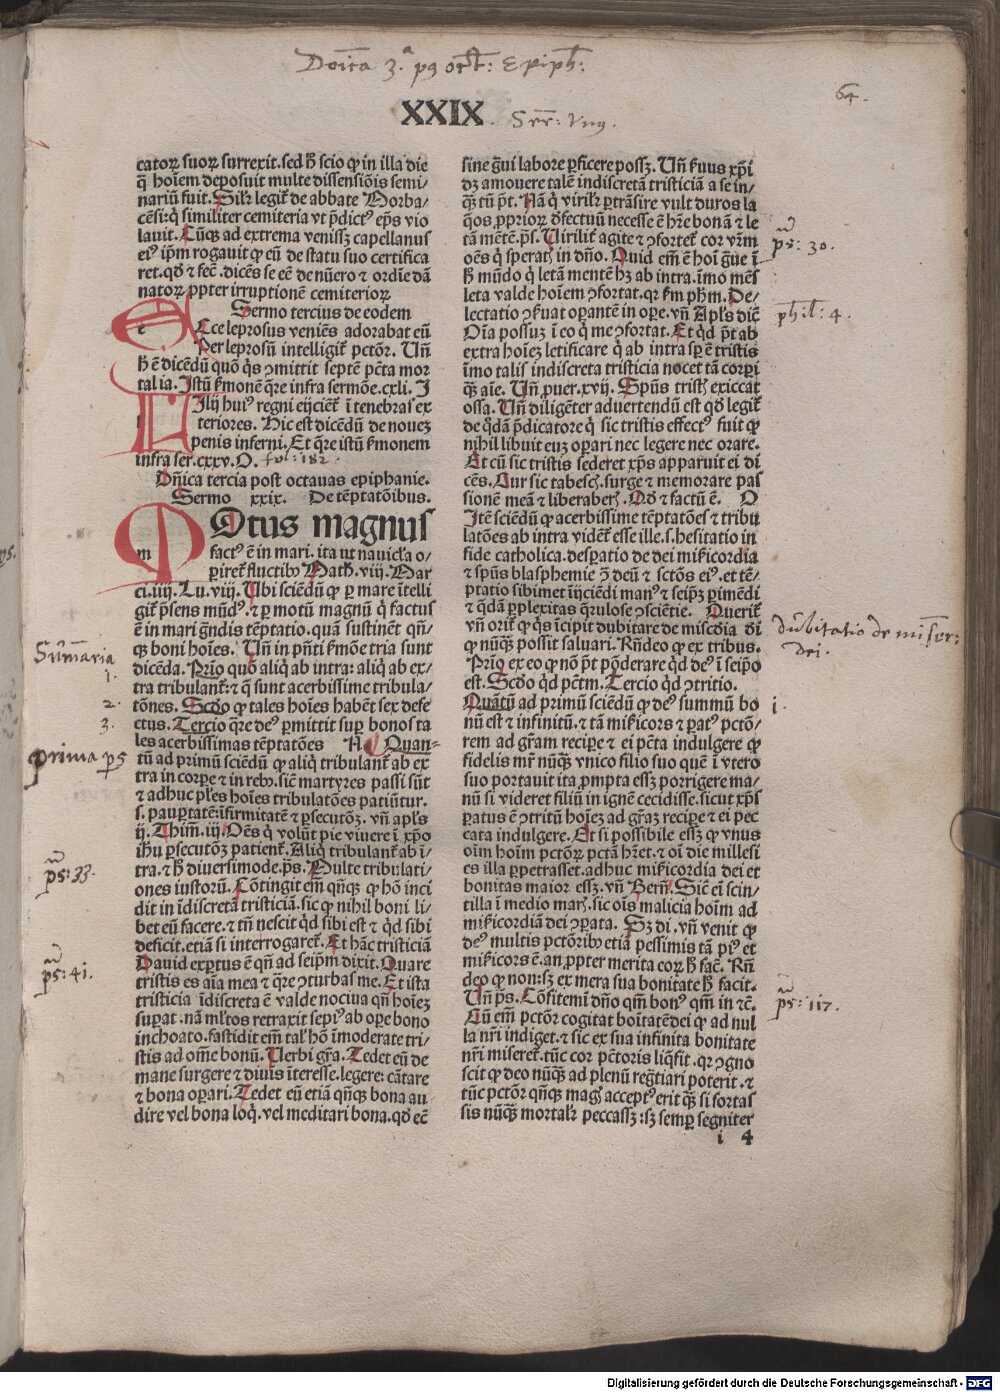 Doīca 3.ª pꝯ oct: Epiph:
64.
XXIX. Ser: Vnꝯ.
catoꝝ suoꝝ surrexit. sed ħ scio ꝙ in illa die
q̄ hoīem deposuit multe dissensiōis semi/
nariū fuit. Silr̄ legit̄ de abbate Morba/
cēsi: q̇ similiter cemiteria vt p̄dictꝰ ep̄s vio
lauit. Cūqꝫ ad extrema venissꝫ capellanus
eiꝰ ip̄m rogauit ꝙ eū de statu suo certifica
ret. qđ ⁊ fecͭ. dicēs se eē de nūero ⁊ ordīe dā
natoꝝ ꝓpter irruptionē cemiterioꝝ
Sermo tercius de eodem
e
Ecce leprosus veniēs adorabat eū
Per leprosū intelligit̄ pctōr. Vn̄
ħ ē dicēdū quō q̇s ꝯmittit septē pctā mor
talia. Istū ẜmonē q̄re infra sermōe. cxli. I
Filij huiꝰ regni eijcient̄ ī tenebras ex
teriores. Hic est dicēdū de nouez
penis inferni. Et q̄re istū ẜmonem
infra ser. cxxv. O. fol: 182.
Dn̄ica tercia post octauas epiphanie.
Sermo xxix. De tēptatōibus.
Motus magnus
m
factꝰ ē in mari. ita ut nauicl̄a o/
ꝑiret̄ fluctibꝰ Math̄. viij. Mar
ci. iiij. Lu. viij. Vbi sciēdū ꝙ ꝑ mare ītelli
git̄ p̄sens mūdꝰ. ⁊ ꝑ motū magnū q̇ factus
ē in mari grādis tēptatio. quā sustinēt qn̄/
qꝫ boni hoīes. Vn̄ in pn̄ti ẜmōe tria sunt
dicēda. Prīo quō aliq̇ ab intra: aliq̇ ab ex/
tra tribulant̄: ⁊ q̄ sunt acerbissime tribula/
tōnes. Scđo ꝙ tales hoīes habēt sex defe
ctus. Tercio q̄re deꝰ ꝑmittit suꝑ bonos ta
les acerbissimas tēptatōes A Quan-
tū ad primū sciēdū ꝙ aliq̇ tribulant̄ ab ex
tra in corpe ⁊ in rebꝰ. sic̄ martyres passi sūt
⁊ adhuc ples hoīes tribulatōes patiūtur.
s. pauꝑtatē. īfirmitatē ⁊ ꝑsecutōꝫ. vn̄ apls̄
ij. Thim̄. iij. Oēs q̇ volūt pie viuere ī xp̄o
ih̄u ꝑsecutōꝫ patient̄. Aliq̇ tribulant̄ ab ī/
tra. ⁊ ħ diuersimode. ps̄. Multe tribulati/
ones iustorū. Cōtingit em̄ qn̄qꝫ ꝙ hō inci
dit in īdiscretā tristiciā. sic ꝙ nihil boni li/
bet eū facere. ⁊ tn̄ nescit qđ sibi est ⁊ qđ sibi
deficit. etiā si interrogaret̄. Et hāc tristiciā
Dauid exꝑtus ē qn̄ ad seip̄m dixit. Quare
tristis es aīa mea ⁊ q̄re ꝯturbas me. Et ista
tristicia īdiscreta ē valde nociua qn̄ hoīeꝫ
suꝑat. nā ml̄tos retraxit sepiꝰ ab oꝑe bono
inchoato. fastidit em̄ tal' hō īmoderate tri/
stis ad om̄e bonū. Verbi gr̄a. Tedet eū de
mane surgere ⁊ diuīs īteresse. legere: cātare
⁊ bona oꝑari. Tedet eū etiā qn̄qꝫ bona au/
dire vel bona loq̇. vel meditari bona. qđ ecͭ
sine gͣui labore ꝑficere possꝫ. Vn̄ ẜuus xp̄i
dꝫ amouere talē indiscretā tristiciā a se in/
qͣꝫ tū pt̄. Nā q̇ virilr̄ ꝑtrāsire vult duros la
q̄os ꝓprioꝝ defectuū necesse ē hr̄e bonā ⁊ le
tā mētē. ps̄. Virilit̄ agite ⁊ ꝯfortet̄ cor vr̄m
oēs q̇ speratꝭ in dn̄o. Quid em̄ ē hoī gͣue ī
ħ mūdo q̇ letā mentē hꝫ ab intra. īmo mēs
leta valde hoīem ꝯfortat. qꝛ ẜm ph̄m. De/
lectatio ꝯẜuat oꝑantē in oꝑe. vn̄ Apls̄ dic̄
Oīa possuꝫ ī eo q̇ me ꝯfortat. Et qđ pt̄ ab
extra hoīeꝫ letificare q̇ ab intra sꝑ ē tristis
īmo talis indiscreta tristicia nocet tā corꝑi
qͣꝫ aīe. Vn̄ ꝓuer. xvij. Sp̄us tristꝭ exiccat
ossa. Vn̄ diligēter aduertendū est qđ legit̄
de qđā p̄dicatore q̇ sic tristis effectꝰ fuit ꝙ
nihil libuit euꝫ oꝑari nec legere nec orare.
Et cū sic tristis sederet xp̄s apparuit ei di
cēs. Cur sic tabescꝭ. surge ⁊ memorare pas
sionē meā ⁊ liberaberꝭ. Qđ ⁊ factū ē. O
Itē sciēdū ꝙ acerbissime tēptatōes ⁊ tribu
latōes ab intra vident̄ esse ille. s. hesitatio in
fide catholica. desꝑatio de dei mīcordia
⁊ sp̄us blasphemie ꝯ deū ⁊ sctōs eiꝰ. et tē/
ptatio sibimet iniciēdi manꝰ ⁊ seip̄ꝫ ꝑimēdi
⁊ q̄dā ꝑplexitas q̄rulose ꝯsciētie. Querit̄
vn̄ orit̄ ꝙ q̇s īcipit dubitare de mīscdia di
ꝙ nūqꝫ possit saluari. Rn̄deo ꝙ ex tribus.
Prīo ex eo ꝙ nō pt̄ pōderare qđ deꝰ ī seip̄o
est. Scđo qđ pctm̄. Tercio qđ ꝯtritio.
Quātū ad primū sciēdū ꝙ deꝰ summū bo
nū est ⁊ infinitū. ⁊ tā mīcors ⁊ ꝑatꝰ pctō/
rem ad gr̄am reciꝑe ⁊ ei pctā indulgere ꝙ
fidelis mr̄ nūqꝫ vnico filio suo quē ī vtero
suo portauit ita ꝓmpta essꝫ porrigere ma/
nū si videret filiū in ignē cecidisse. sicut xp̄s
ꝑatus ē ꝯtritū hoīeꝫ ad gr̄aꝫ reciꝑe ⁊ ei pec
cata indulgere. Et si possibile essꝫ ꝙ vnus
oīm hoīm pctōꝝ pctā hr̄et. ⁊ oī die millesi
es illa ꝑpetrasset. adhuc mīcordia dei et
bonitas maior essꝫ. vn̄ Bern̄. Sic̄ ei scin/
tilla ī medio marꝭ. sic oīs malicia hoīm ad
mīcordiā dei ꝯꝑata. Sꝫ di. vn̄ venit ꝙ
deꝰ multis pctōribꝰ etiā pessimis tā piꝰ et
mīcors ē. an ꝓpter merita eoꝝ ħ fac̄. Rn̄
deo ꝙ non: sꝫ ex mera sua bonitate ħ facit.
Vn̄ ps̄. Cōfitemī dn̄o qm̄ bonꝰ qm̄ in ⁊c̄.
Cū em̄ pctōr cogitat boītatē dei ꝙ ad nul
la nr̄i indiget. ⁊ sic ex sua infinita bonitate
nr̄i miseret̄. tūc cor pctōris liq̄fit. qꝛ ꝯgno
scit ꝙ deo nūqꝫ ad plenū regr̄tiari poterit. ⁊
tūc pctōr qn̄qꝫ magꝭ acceptꝰ erit qͣꝫ si fortas
sis nūqꝫ mortalr̄ peccassꝫ: sꝫ semꝑ segniter
i 4
Sum̄aria
1.
2.
3.
prima ps
ps: 33.
ps: 41.
ps: 30.
phil: 4.
dubitatio de misēr:
dei.
i.
ps: 117.
Digitalisierung gefördert durch die Deutsche Forschungsgemeinschaft - DFG